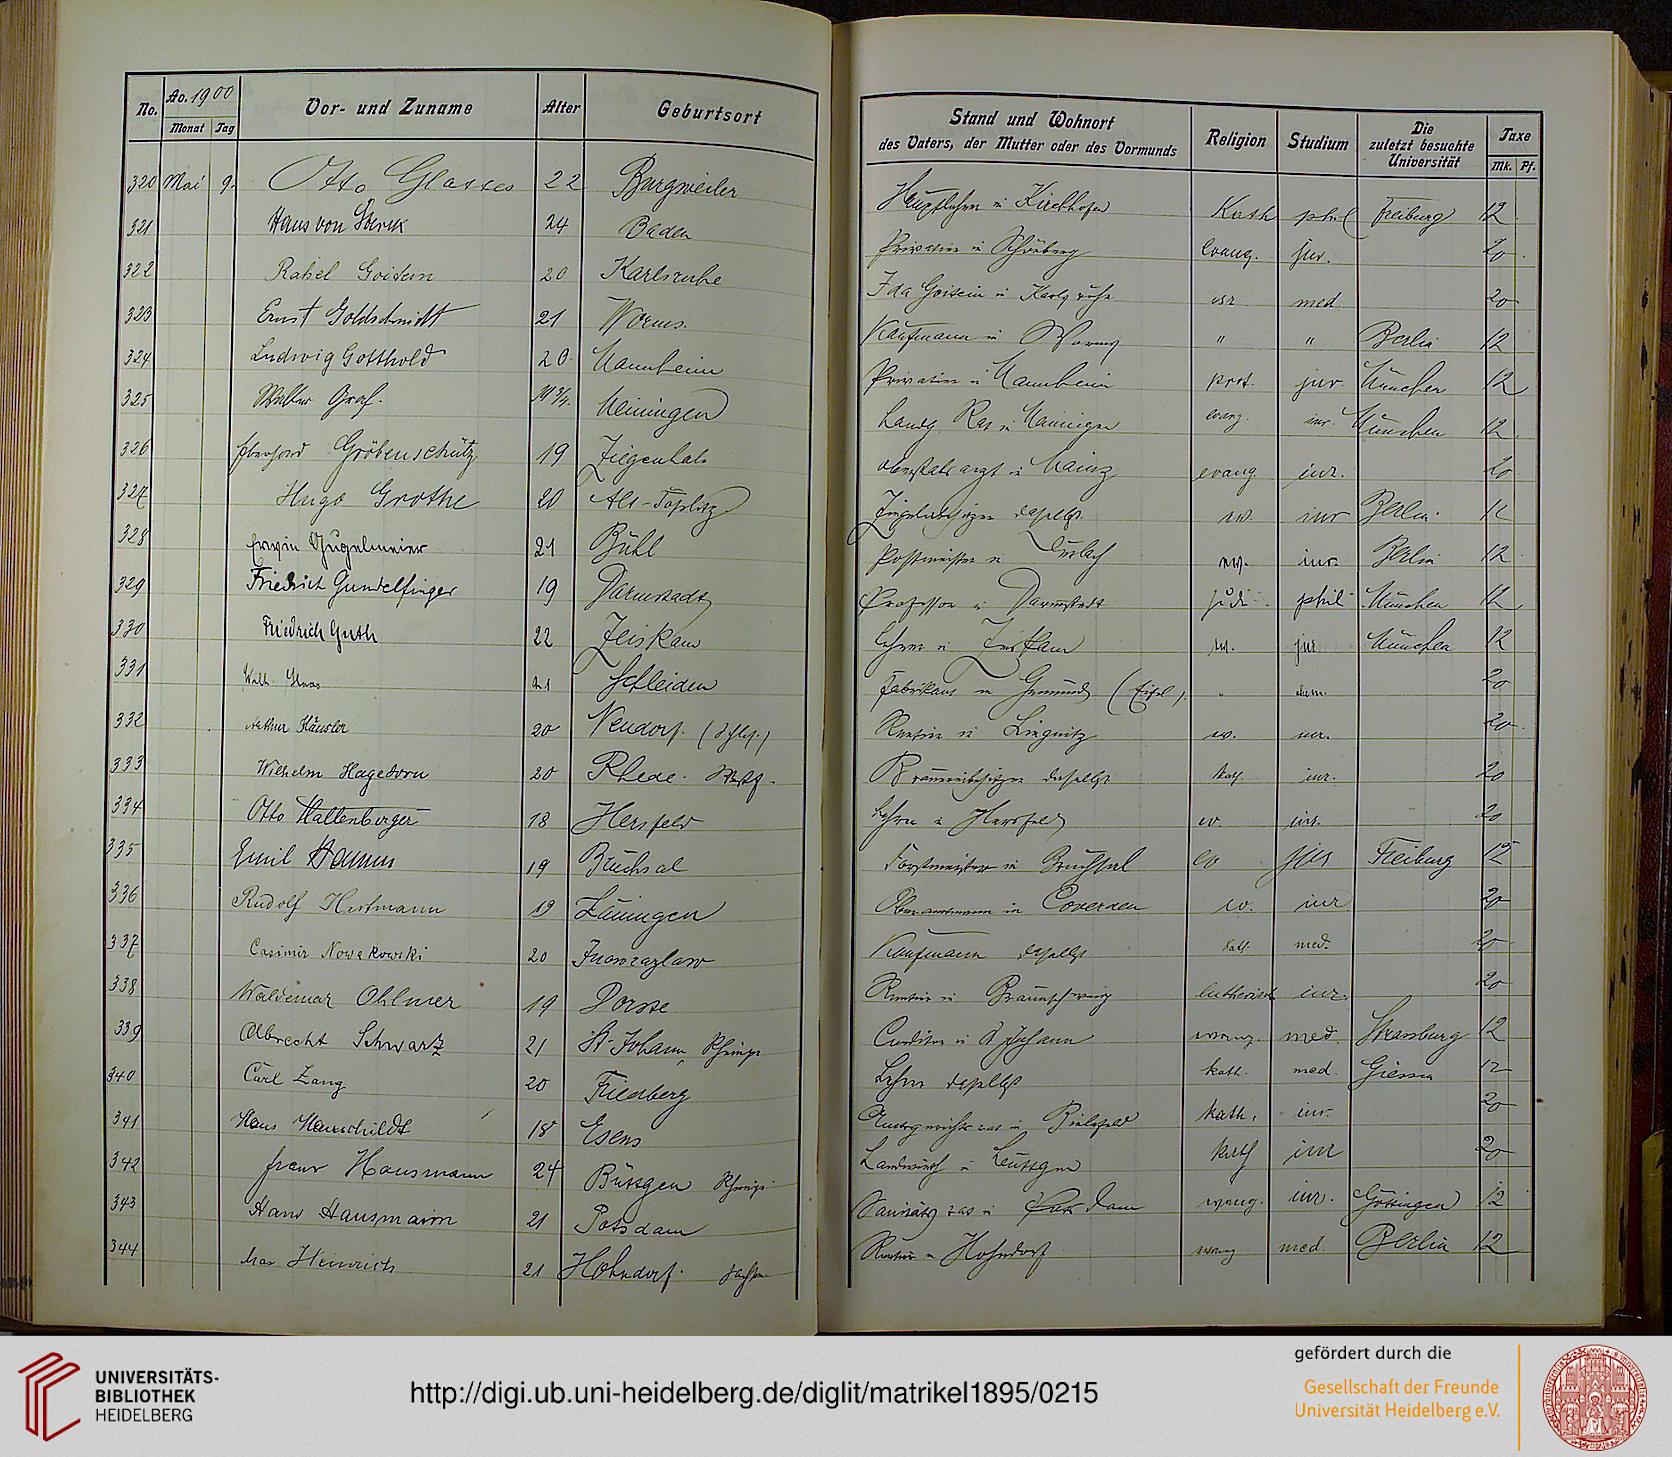 No. Ao. 1900 Vor- und Zuname Alter Geburtsort
Monat Tag
Stand und Wohnort des Vaters, der Mutter oder des Vormunds Religion Studium Die zuletzt besuchte Universität Taxe
Mk. Pf.
320 Mai 9. Otto 22 Burgweiler Hauptlehrer in Kirchhofen Kath phil Freiburg 12
321 Hans von 24 Baden Privatier in evang. jur. 20
322 Rahel Goitein 20 Karlsruhe Ida Goitein in Karlsruhe isr. med 20
323 Ernst Goldschmidt 21 Worms. Kaufmann in Worms " " Berlin 12
324 Ludwig Gotthold 20. Mannheim Privatier in Mannheim prot. jur. München 12
325 Walter Graf. Meiningen Landg. Rat in Meiningen evang. jur. München 12.
326 Eberhard Gröbenschütz 19 Ziegenhals Oberstabsarzt in Mainz evang. jur. 20
327 Hugo Grothe 20 Alt-Töplitz Ziegeleibesitzer daselbst ev. jur Berlin 12
328 Erwin Gugelmeier 21 Bühl Postmeister in Durlach ev. jur. Berlin 12
329 Friedrich Gundelfinger 19 Darmstadt Professor in Darmstadt jüd. phil München 12
330 Friedrich Guth 22 Zeiskam Lehrer in Zeiskam jur München 12
331 Walt. Haas 21 Schleiden Fabrikant in Gemünd (Eifel). " chem. 20
332 Arthur Häusler 20 Neudorf. (Schles.) Rentier in Liegnitz ev. jur. 20
333 Wilhelm Hagedorn 20 Rhede. Westf. Brauereibesitzer daselbst kath. jur. 20
334 Otto Haltenberger 18 Hersfeld Lehrer in Hersfeld ev. jur. 20
335 Emil Hamm 19 Bruchsal Forstmeister in Bruchsal ev jur Freiburg 12
336 Rudolf Hartmann 19 Oberamtmann in ev. jur 20
337 Casimir Nowakowski 20 Inowrazlaw Kaufmann daselbst kath. med. 20
338 Waldemar Ohlmer 19 Dorste Rentier in Braunschweig lutherisch jur. 20
339 Albrecht Schwartz 21 St. Johann Rheinpr. in St. Johann evang. med. Strassburg 12
340 Carl Zang 20 Friedberg Lehrer daselbst kath. med. Giessen 12
341 Hans 18 Esens Amtsgerichtsrat in Bielefeld kath. jur. 20
342 Franz Hausmann 24 Büttgen Rheinpr. Landwirth in Büttgen kath jur 20
343 Hans Hausmann 21 Potsdam Sanitätsrat in Potsdam evang. jur. Göttingen 12
344 Max Heinrich 21 Hohndorf. Sachsen Rentier in Hohndorf evang med Berlin 12
UNIVERSITÄTS-
BIBLIOTHEK
HEIDELBERG
http://digi.ub.uni-heidelberg.de/diglit/matrikel1895/0215
gefördert durch die
Gesellschaft der Freunde
Universität Heidelberg e.V.